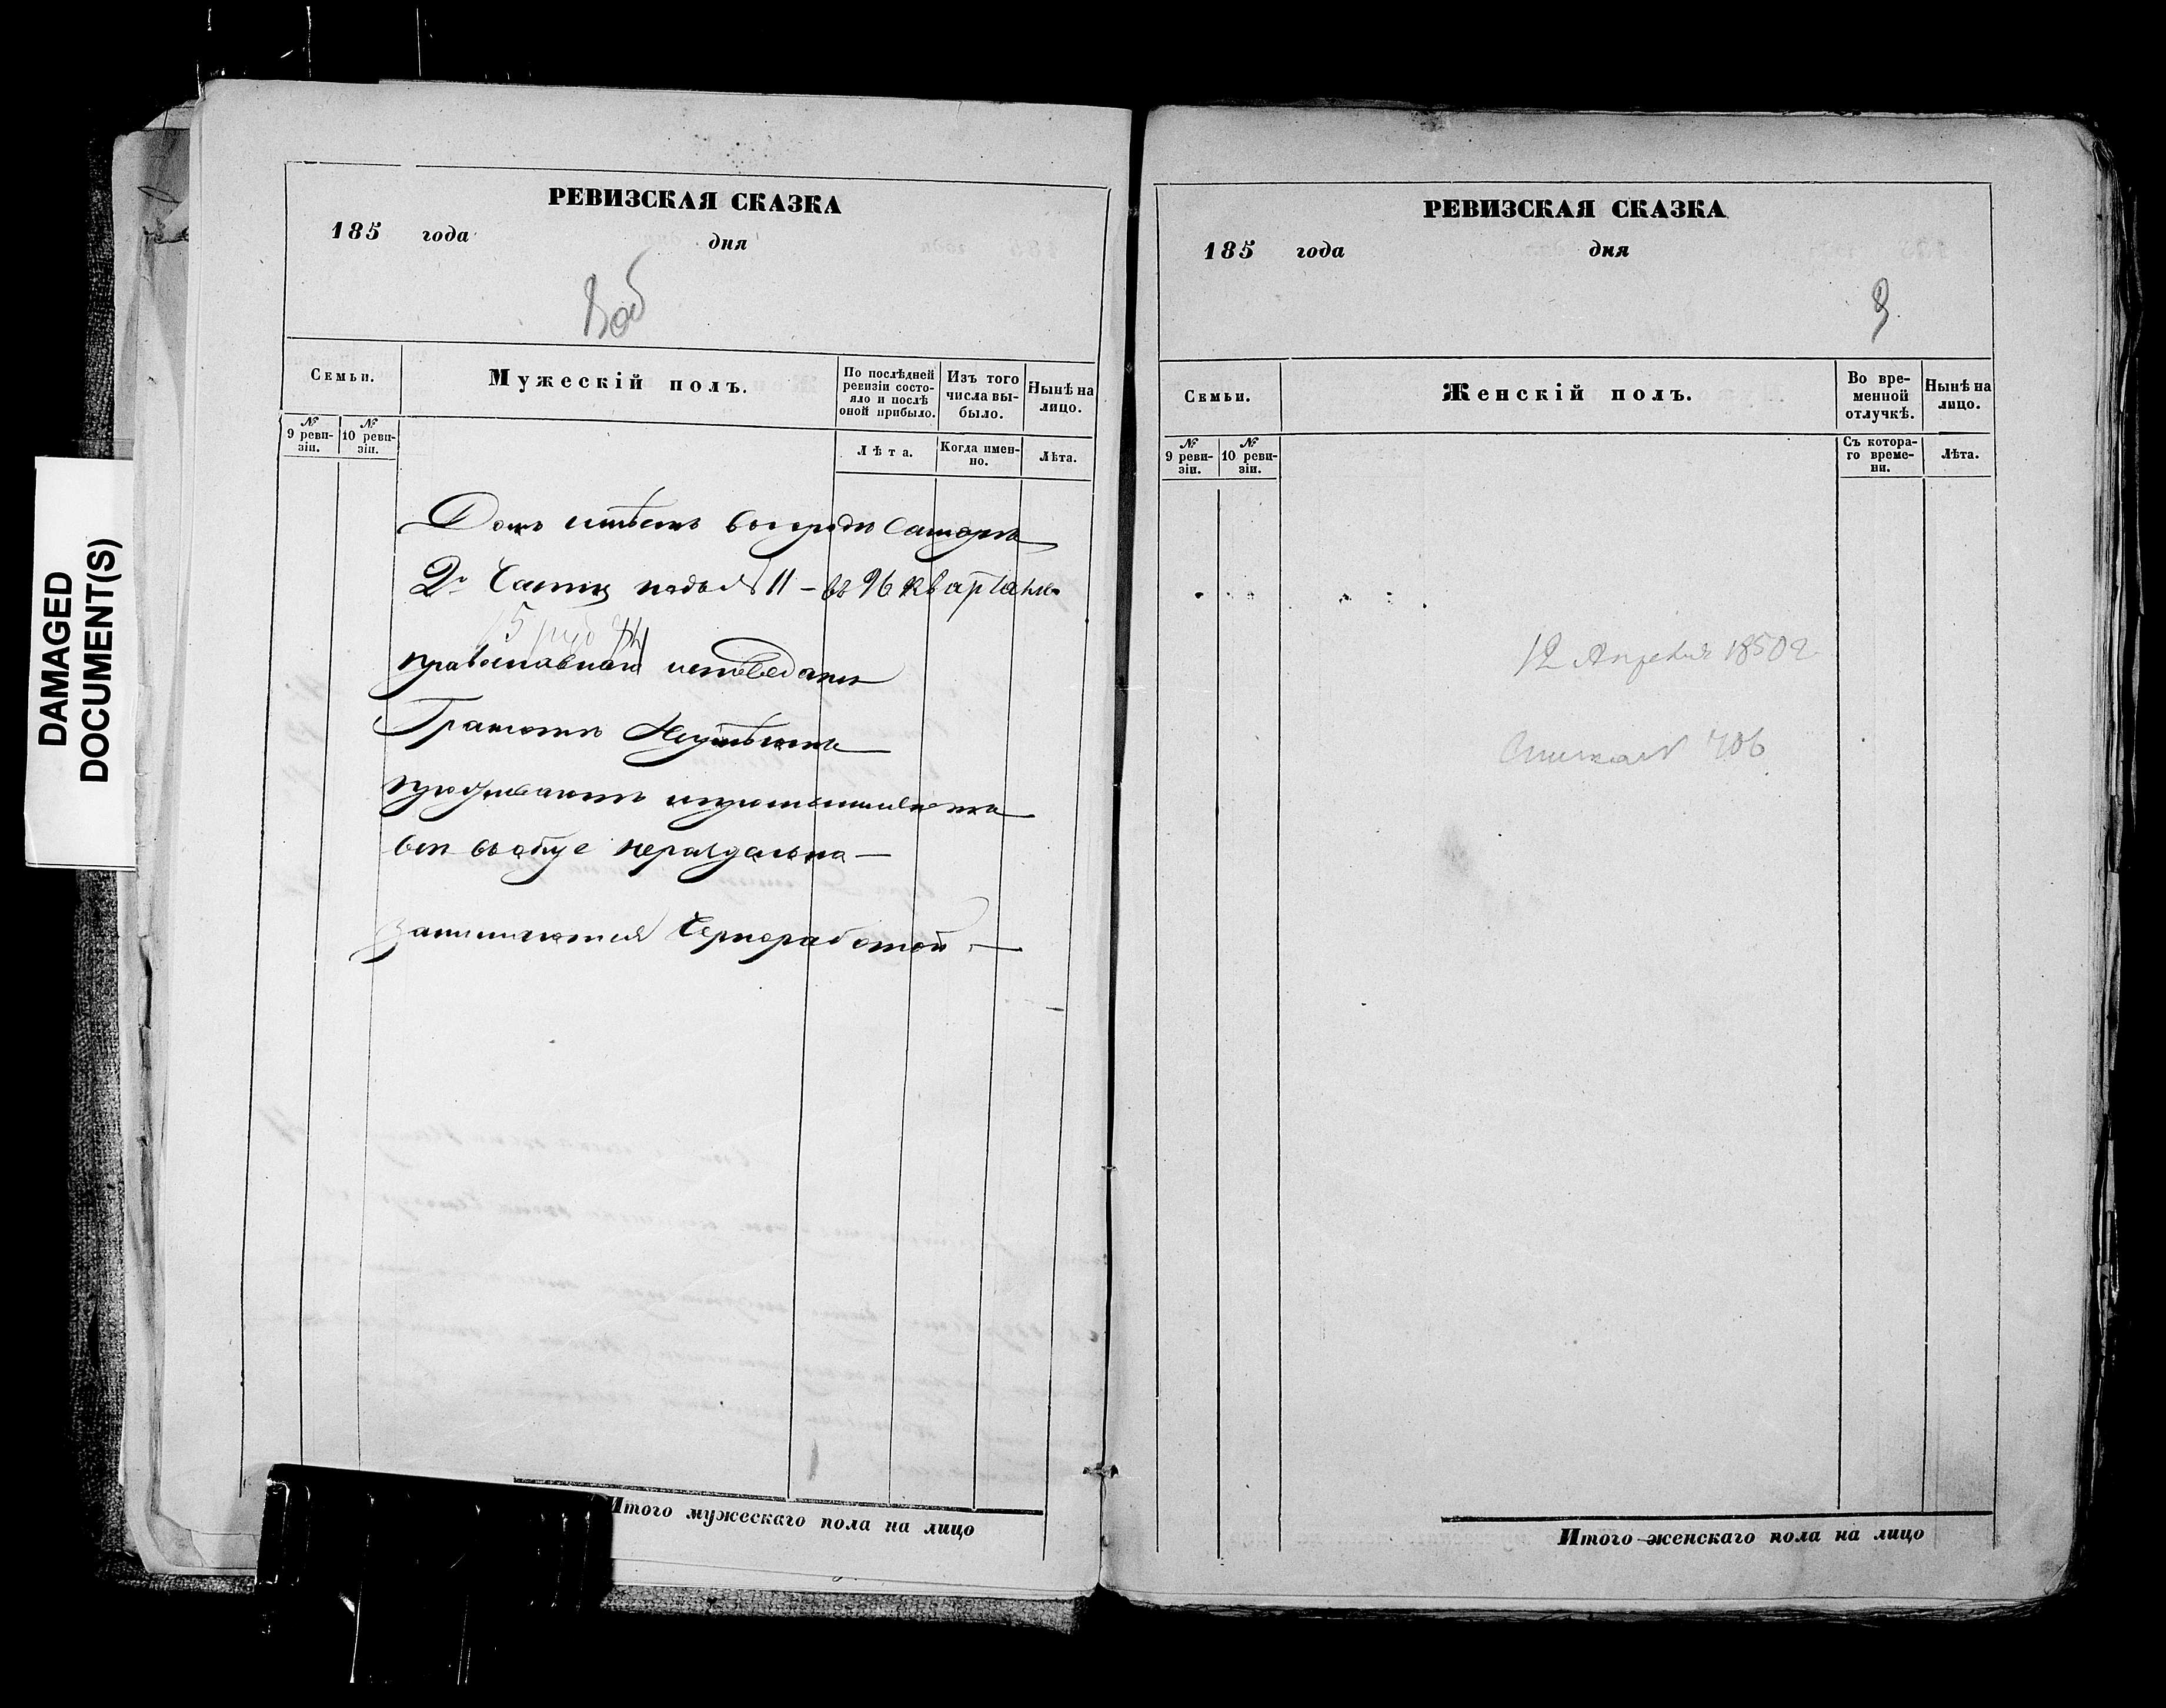 DAMAGED
DOCUMENT(S)
РЕВИЗСКАЯ СКАЗКА
185 года дня
Семьи.
Мужескій полъ.
По послѣдней ревизіи состо-
яло и послѣ
оной прибыло.
Изъ того
числа вы-
было.
Нынѣ на
лицо.
№
9 реви-
зіи.
№
10 реви-
зіи.
Лѣта.
Когда имен-
но.
Лѣта.
Домъ имѣетъ въ городѣ Самарѣ
2й Части подъ № 11 – въ 96 кварталѣ
15 руб
православнаго исповеданія
Грамотѣ Неумѣютъ
проживаютъ
всѣ вообще нераздельно —
занимаются Черноработой —
Итого мужескаго пола на лицо
РЕВИЗСКАЯ СКАЗКА
185 года дня
Семьи.
Женскій полъ.
Во вре-
менной
отлучкѣ.
Нынѣ на
лицо.
№
9 реви-
зіи.
№
10 реви-
зіи.
Съ котора-
го време-
ни.
Лѣта.
12 Апреля 1850 г
706
Итого женскаго пола на лицо